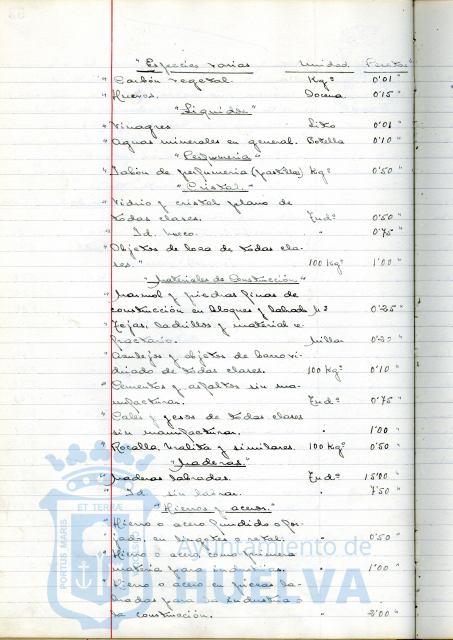 "Especies varias Unidad Pesetas
" Carbón vegetal. Kgº 0'01 "
" Huevos. Docena 0'15 "
"Líquidos"
" Vinagres Litro 0'01 "
" Aguas minerales en general. Botella 0'10 "
"Perfumería"
" Jabón de perfumería (pastilla) Kgº 0'50 "
"Cristal"
" Vidrio y cristal plano de
todas clases. 0'50 "
" Id. hueco. " 0'75 "
" Objetos de loza de todas cla-
ses." 100 Kgº 1'00 "
"Materiales de Construcción"
" Marmol y piedras finas de
construcción en bloques y labrado M3 0'25 "
" Tejas, ladrillos y material re-
fractario. Millar "
" Azulejos y objetos de barro vi-
driado de todas clases. 100 Kgº 0'10 "
" Cementos y asfaltos sin ma-
nufacturar. 0'75 "
" Cales y yesos de todas clases
sin manufacturar. " 1'00 "
" Rocalla, y similares. 100 Kgº 0'50 "
"Maderas"
" Maderas labradas. 15'00 "
" Id. sin labrar. " 7'50 "
"Hierros y aceros."
" Hierro o acero fundido o for-
jado en lingotes o retal. " 0'50 "
" Hierro o acero como primera
materia para industrias. " 1'00 "
" Hierro o acero en piezas la-
bradas para la industria o
la construcción. " 2'00 "
PORTUS MARIS ET TERRAE
Ayuntamiento de
HUELVA